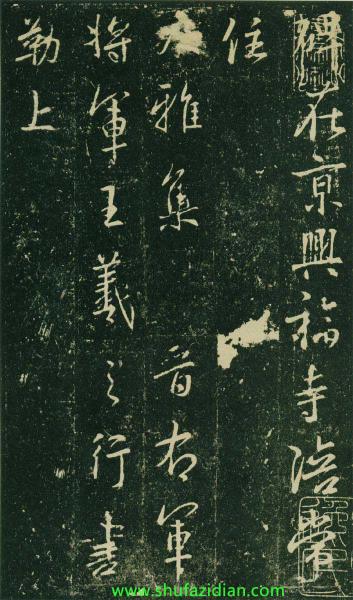 碑在京興福寺陪常
住
大雅集 晉右軍
將軍王羲之行書
勒上
www.shufazidian.com